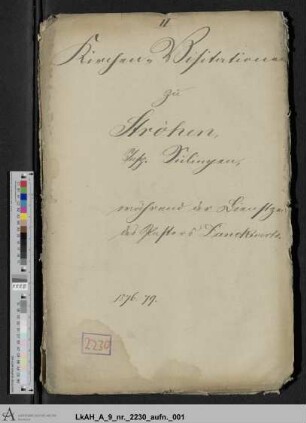 11
Kirchen-Visitationen
zu
Ströhen,
Insp. Sulingen,
während der Dienstze
des Pastors Danckwerts.
1876. 79.
2230
LkAH_A_9_nr._2230_aufn._001